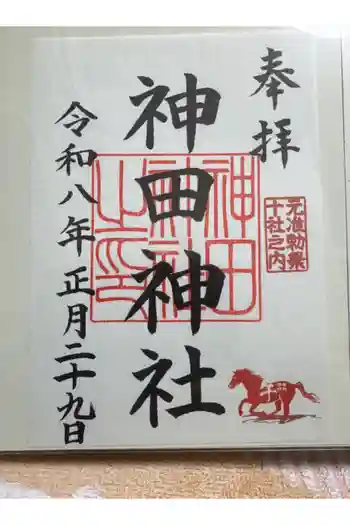 奉拝
元准勅祭
十社之内
神田神社
神田神社之印
令和八年正月二十九日